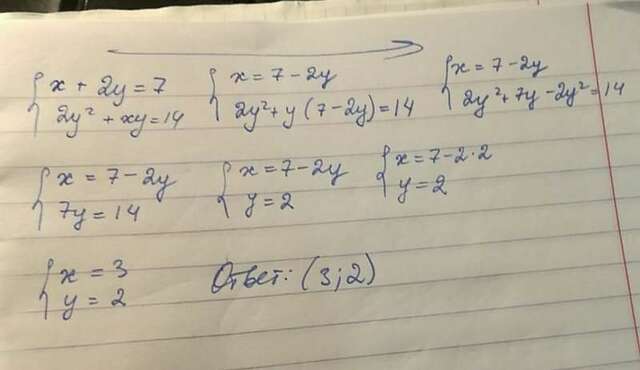 x + 2y = 7
2y² + xy = 14
x = 7 - 2y
2y² + y (7 - 2y) = 14
x = 7 - 2y
2y² + 7y - 2y² = 14
x = 7 - 2y
7y = 14
x = 7 - 2y
y = 2
x = 7 - 2·2
y = 2
x = 3
y = 2
Ответ: (3; 2)